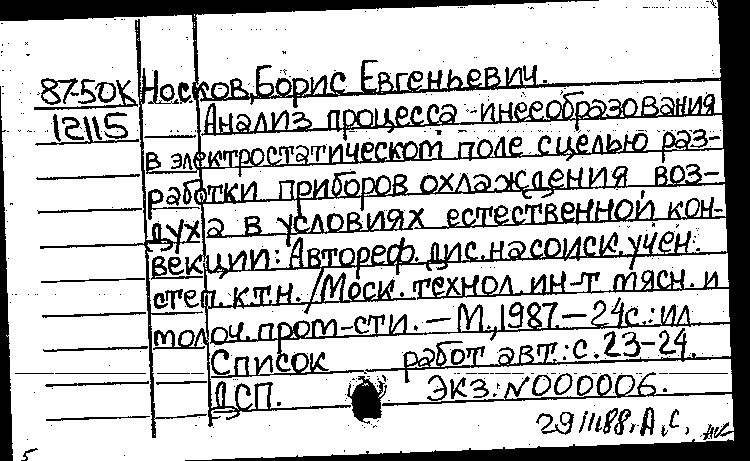 87-50К Носков, Борис Евгеньевич.
12115 Анализ процесса инееобразования
в электростатическом поле с целью раз-
работки приборов охлаждения воз-
духа в условиях естественной кон-
векции: Автореф. дис. на соиск. учен.
степ. к.т.н. /Моск. технол. ин-т мясн. и
молоч. пром-сти. — М., 1987. — 24с.: ил
Список работ авт.: с. 23-24.
ДСП. ЭКЗ: N000006.
29/II88. А.С.
5